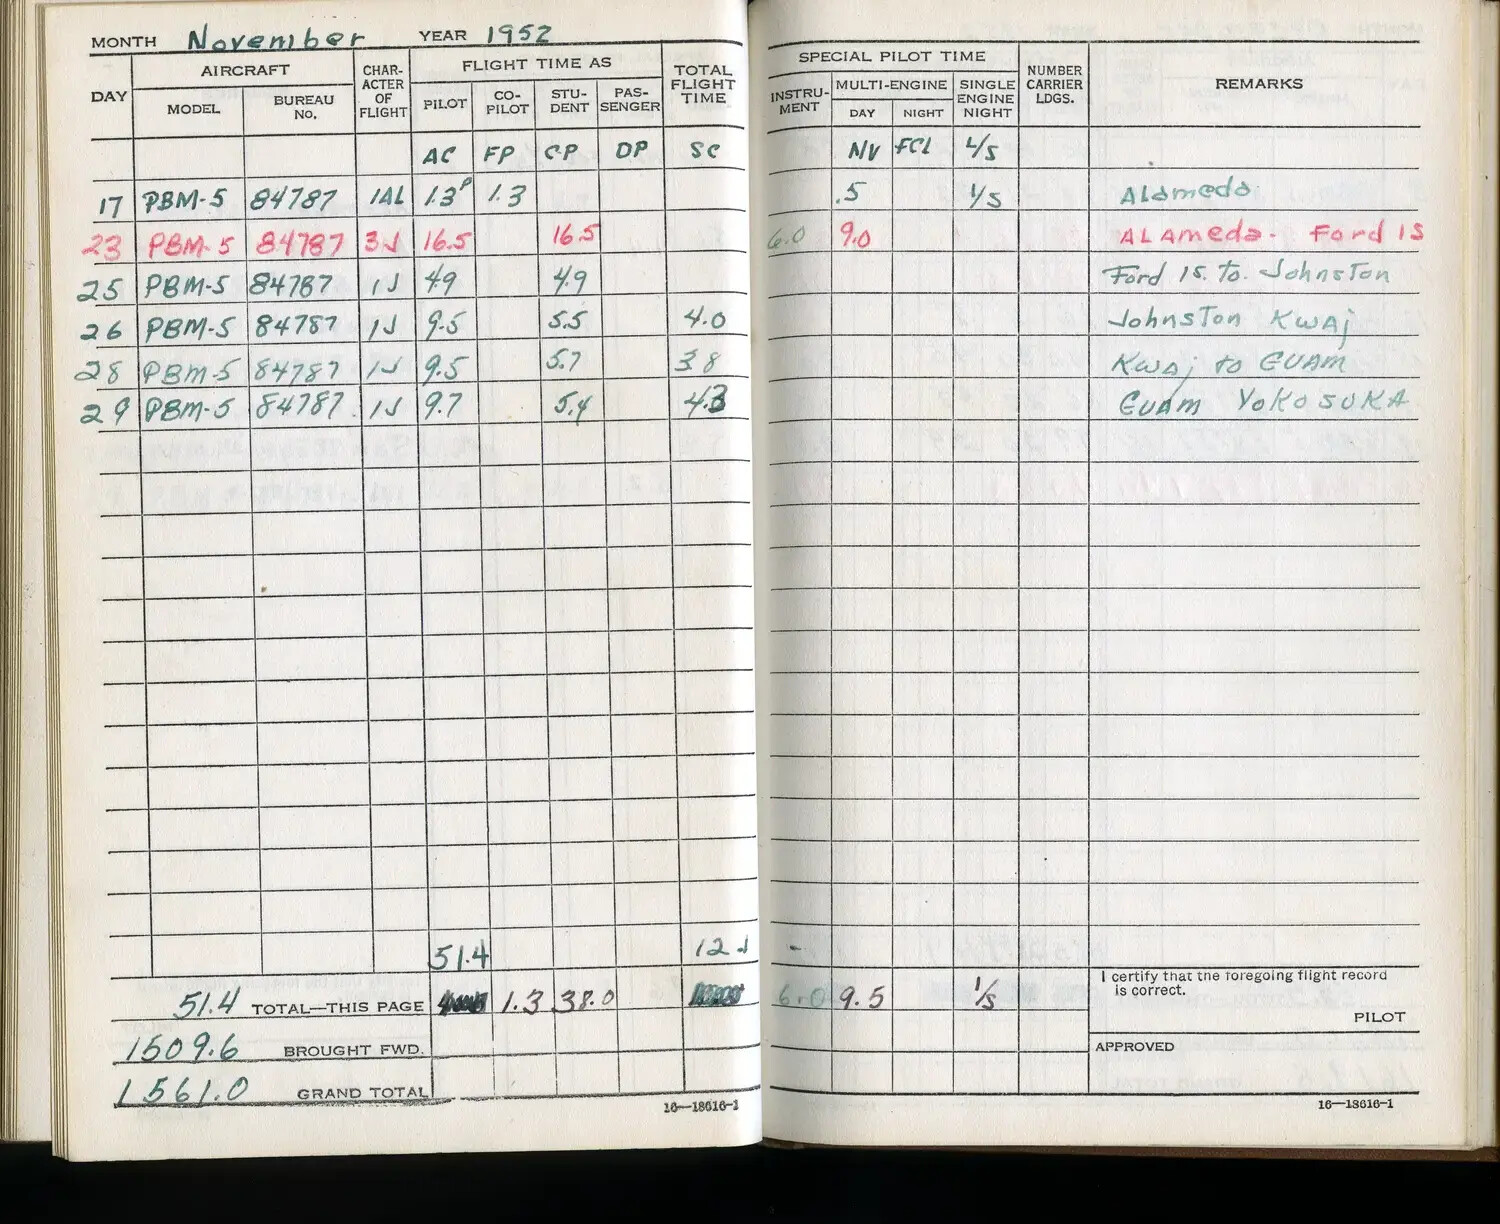 MONTH November YEAR 1952
DAY AIRCRAFT CHAR-ACTER OF FLIGHT FLIGHT TIME AS TOTAL FLIGHT TIME SPECIAL PILOT TIME NUMBER CARRIER LDGS. REMARKS
MODEL BUREAU No. PILOT CO-PILOT STU-DENT PAS-SENGER INSTRU-MENT MULTI-ENGINE SINGLE ENGINE NIGHT
DAY NIGHT
AC FP CP DP SC N/V FCL L/S
17 PBM-5 84787 1AL 1.3P 1.3 .5 1/5 Alameda
23 PBM-5 84787 3J 16.5 16.5 6.0 9.0 ALAmeda- Ford IS
25 PBM-5 84787 1J 4.9 4.9 Ford IS. to Johnston
26 PBM-5 84787 1J 9.5 5.5 4.0 Johnston Kwaj
28 PBM-5 84787 1J 9.5 5.7 3.8 Kwaj to GUAM
29 PBM-5 84787 1J 9.7 5.4 4.3 GUAM YOKOSUKA
51.4 12.1 -
I certify that the foregoing flight record is correct.
51.4 TOTAL—THIS PAGE 1.3 38.0 6.0 9.5 1/5
PILOT
1509.6 BROUGHT FWD. APPROVED
1561.0 GRAND TOTAL
16—18616-1 16—18616-1